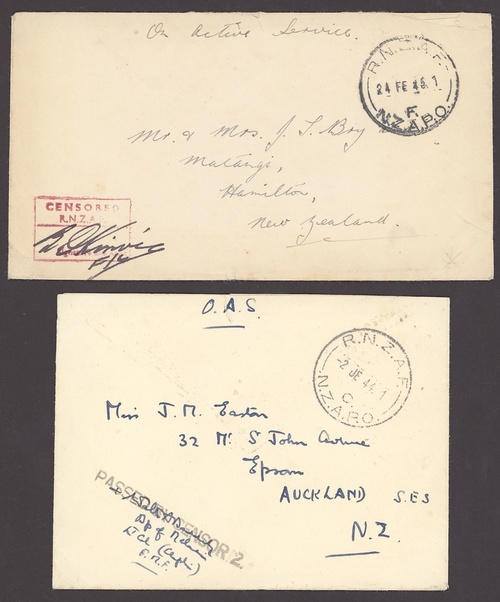 On Active Service.
R.N.Z.A.F.
24 FE 45.1
F.
N.Z.A.P.O.
Mr. & Mrs. J. S. Bry
Matangi,
Hamilton,
New Zealand.
CENSORED
R.N.Z.A.F.
O.A.S.
R.N.Z.A.F.
-2 JE 44.1
C.
N.Z.A.P.O.
Miss J. M. Easton
32 Mt S John Avenue
Epsom
AUCKLAND S.E.3
N.Z.
PASSED BY CENSOR 2.